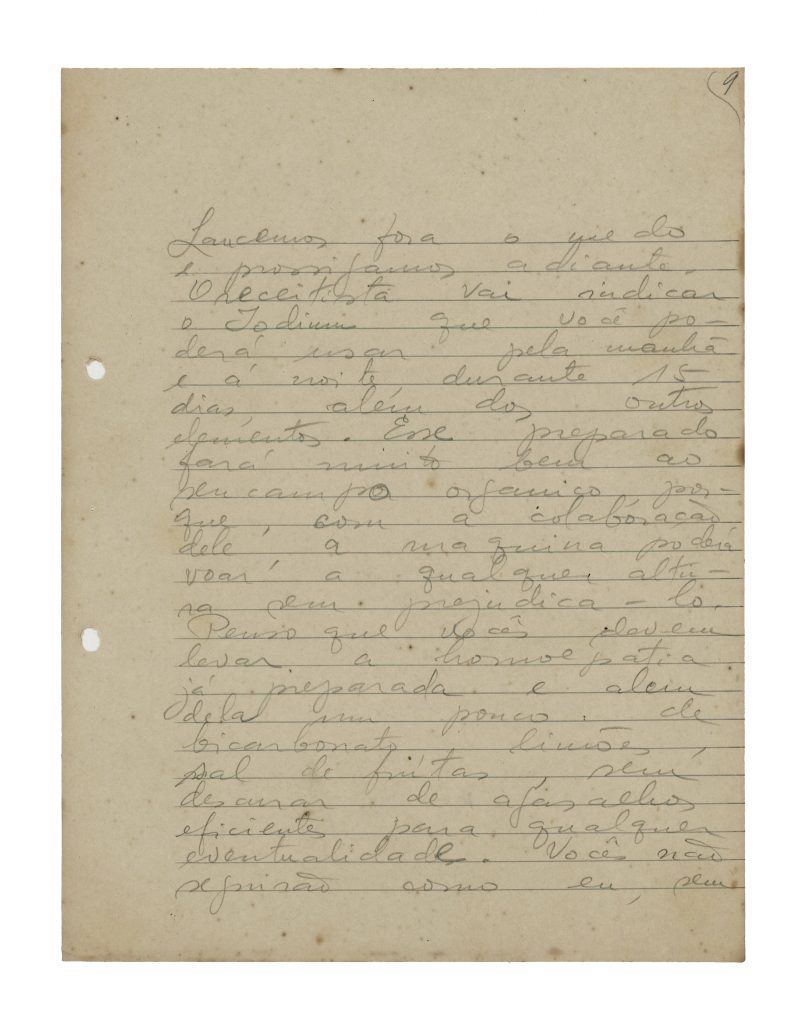 9
Lancemos fora o medo
e prossigamos adiante.
O receitista vai indicar
o Iodium que você po-
derá usar pela manhã
e á noite, durante 15
dias, além dos outros
elementos. Esse preparado
fará muito bem ao
seu campo organico, por-
que, com a colaboração
dele, a maquina poderá
voar a qualquer altu-
ra sem prejudica-lo.
Penso que vocês devem
levar a homoepatia
já preparada e alem
dela um pouco de
bicarbonato, limões,
sal de frutas, sem
descurar de agasalhos
eficientes para qualquer
eventualidade. Vocês não
seguirão como eu, sem